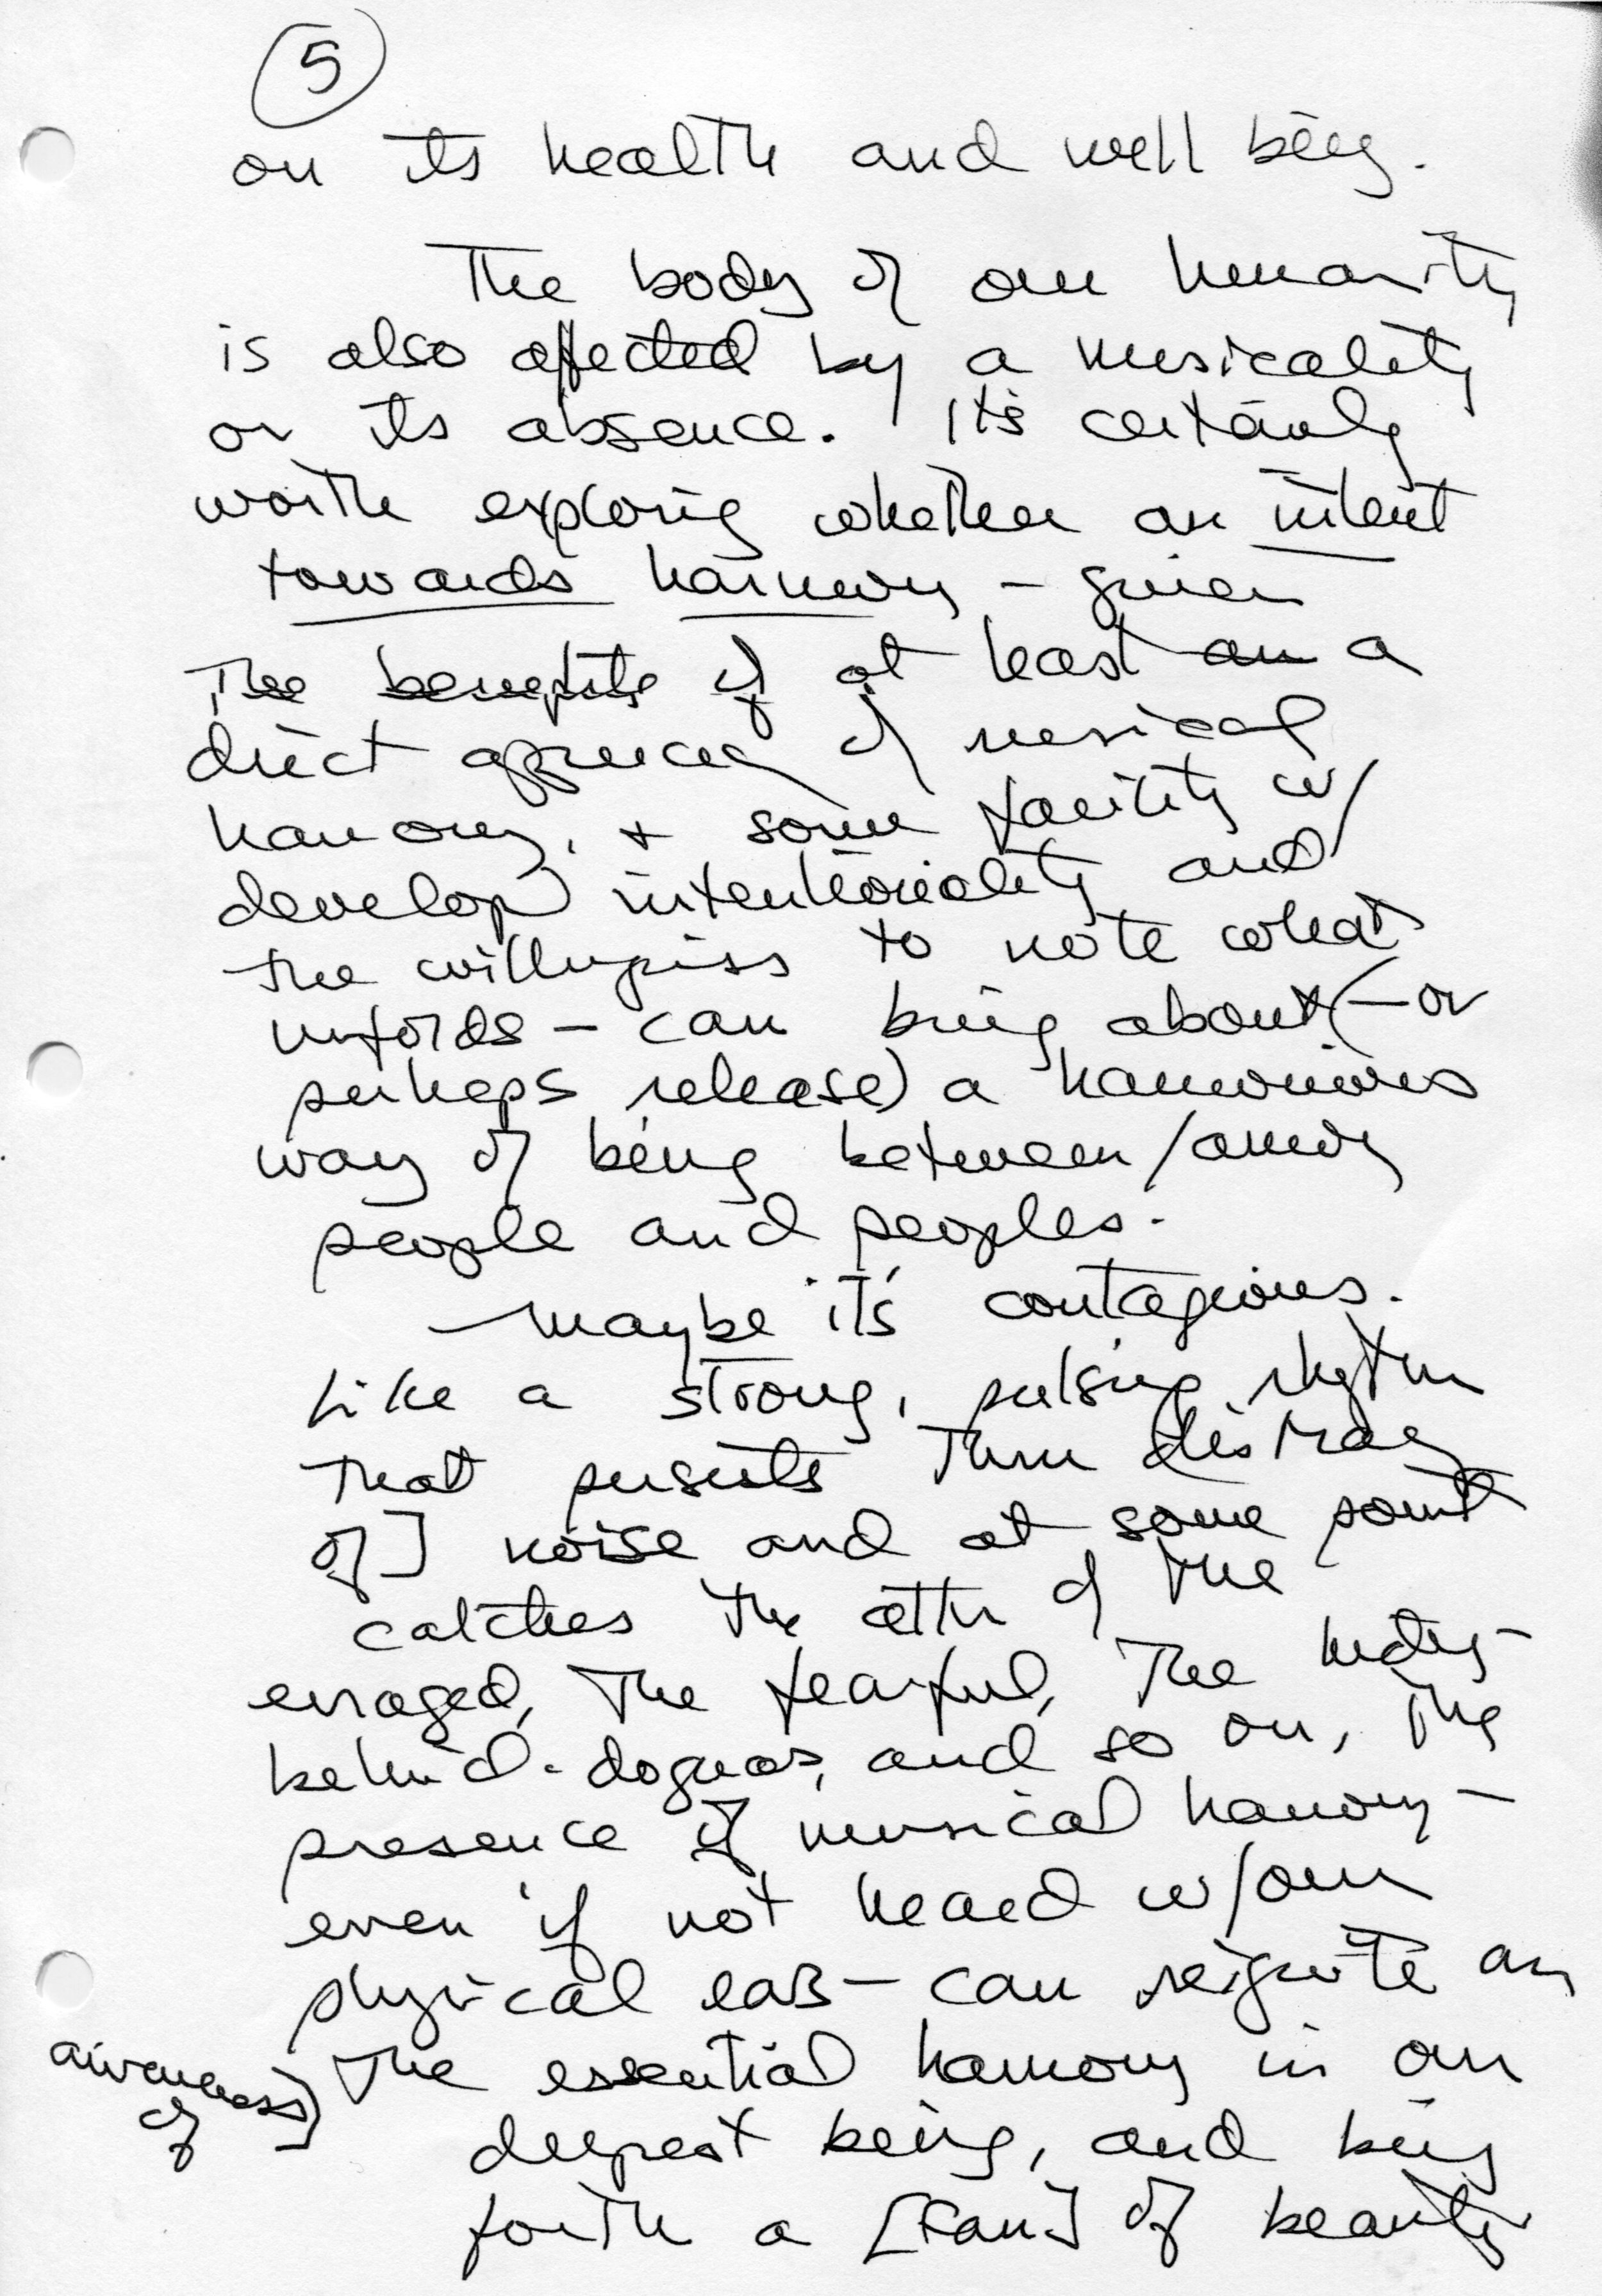 5
on its health and well being.
The body of our humanity
is also affected by a musicality
or its absence. It's certainly
worth exploring whether an intent
towards harmony – given
The benefits of at least an a
direct of musical
harmony, + some facility w/
develop intentionality and
the willingness to note what
unfolds – can bring about (– or
perhaps release) a harmonious
way of being between/among
people and peoples.
Maybe it's contagious.
Like a strong, pulsing rhythm
that persists thru
of] noise and at some point
catches the attn of the
enraged, the fearful, the hiding-
behind-dogmas, and so on, the
presence of musical harmony –
even if not heard w/our
physical ears – can reignite an
awareness of] the essential harmony in our
deepest being, and bring
forth a [ ] of beauty